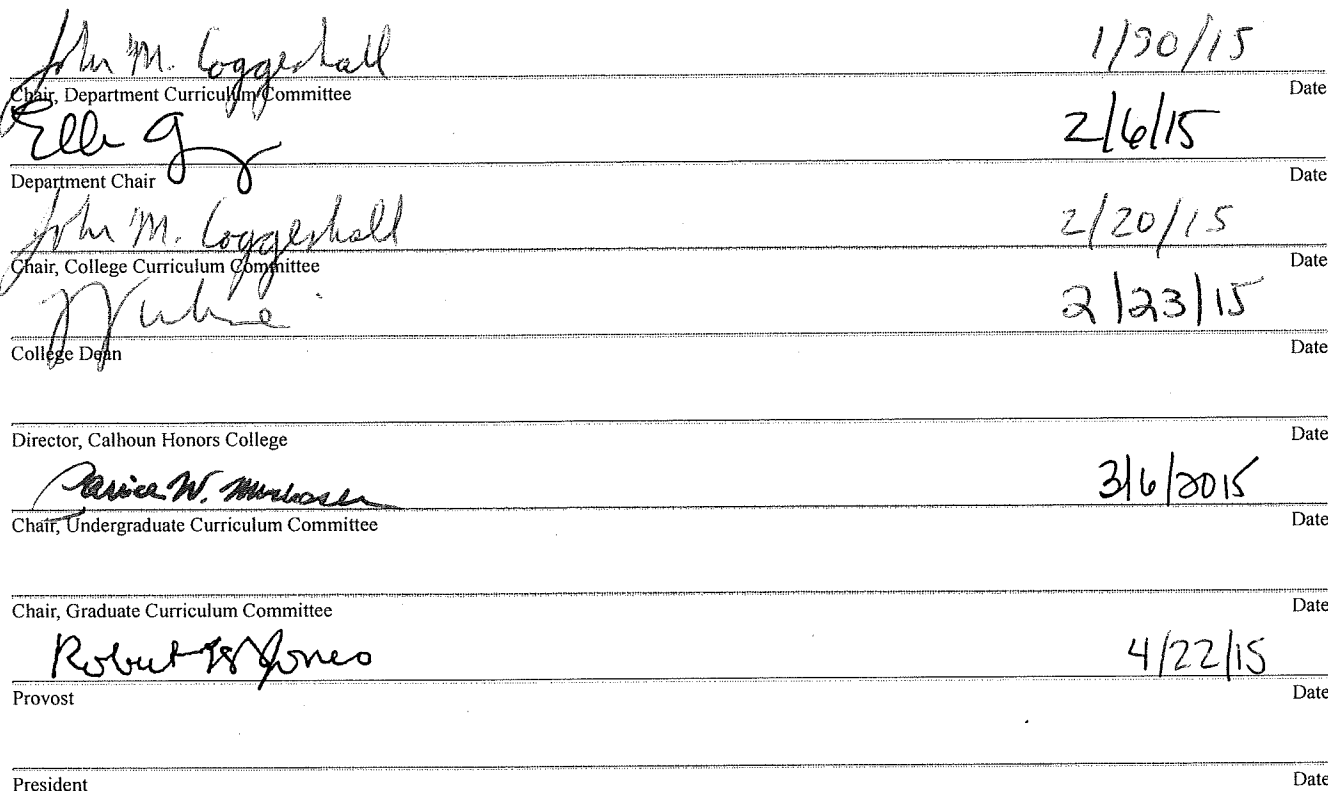 John M. Coggeshall 1/30/15
Chair, Department Curriculum Committee Date
2/6/15
Department Chair Date
John M. Coggeshall 2/20/15
Chair, College Curriculum Committee Date
2/23/15
College Dean Date
Director, Calhoun Honors College Date
Janice W. 3/6/2015
Chair, Undergraduate Curriculum Committee Date
Chair, Graduate Curriculum Committee Date
Robert H Jones 4/22/15
Provost Date
President Date